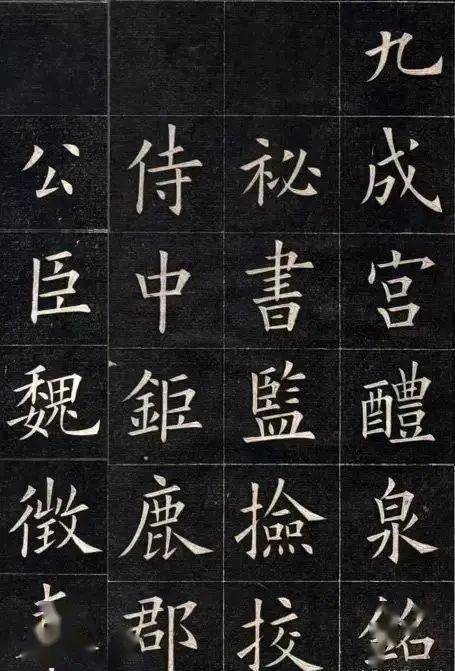 九成宮醴泉銘
祕書監撿挍
侍中鉅鹿郡
公臣魏徵